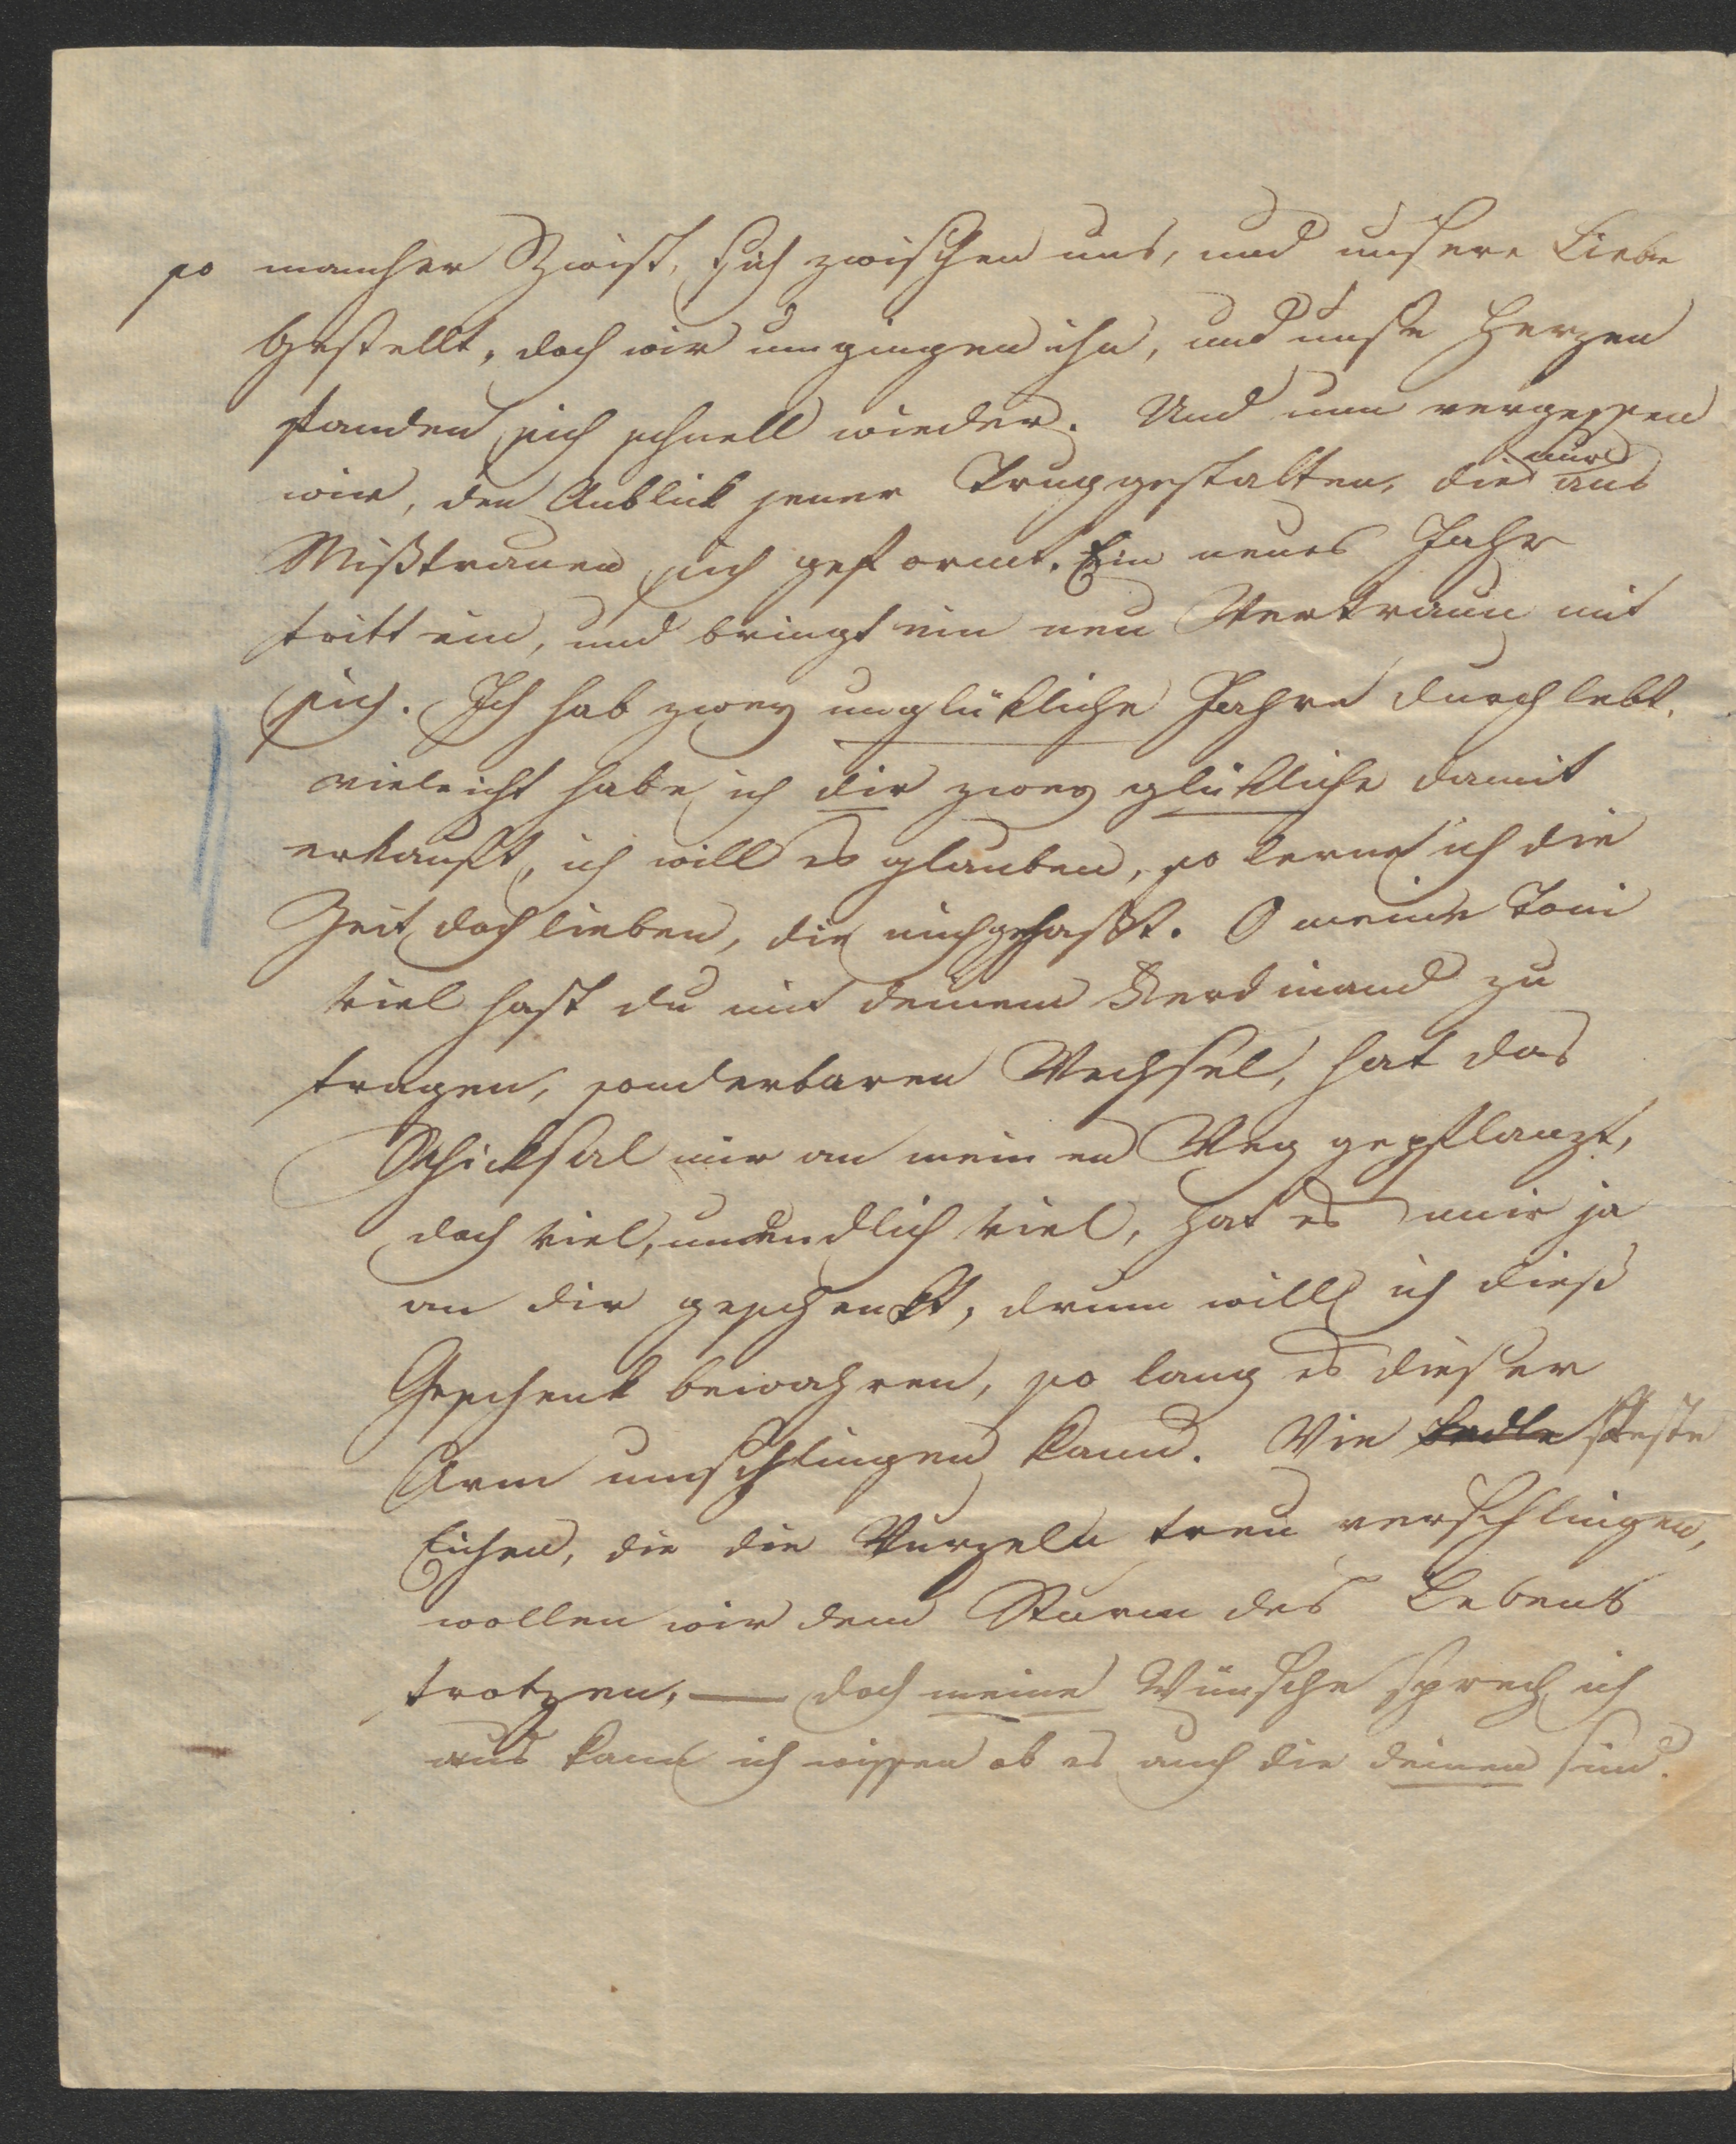 so mancher Zwist, sich zwischen uns, und unsere Liebe
gestellt, doch wir umgingen ihn, und unsre Herzen
fanden sich schnell wieder. Und nun vergessen
wir, den Anblick jener Truggestalten, die nur aus
Mißtrauen sich geformt. Ein neues Jahr
tritt ein, und bringt ein neu Vertraun mit
sich. Ich hab zwey unglükliche Jahre durchlebt,
vieleicht habe ich dir zwey glükliche damit
erkauft, ich will es glauben, so lerne ich die
Zeit doch lieben, die mich gehaßt. O meine Toni
viel hast du mit deinem Ferdinand zu
tragen, sonderbaren Wechsel, hat das
Schicksal mir an meinen Weg gepflanzt,
doch viel, unendlich viel, hat es mir ja
an dir geschenkt, drum will ich dieß
Geschenk bewahren, so lang es dieser
Arm umschlingen kann. Wie feste
Eichen, die die Wurzeln treu verschlingen,
wollen wir dem Sturm des Lebens
trotzen, — doch meine Wünsche sprech ich
aus kann ich wissen ob es auch die deinen sind.